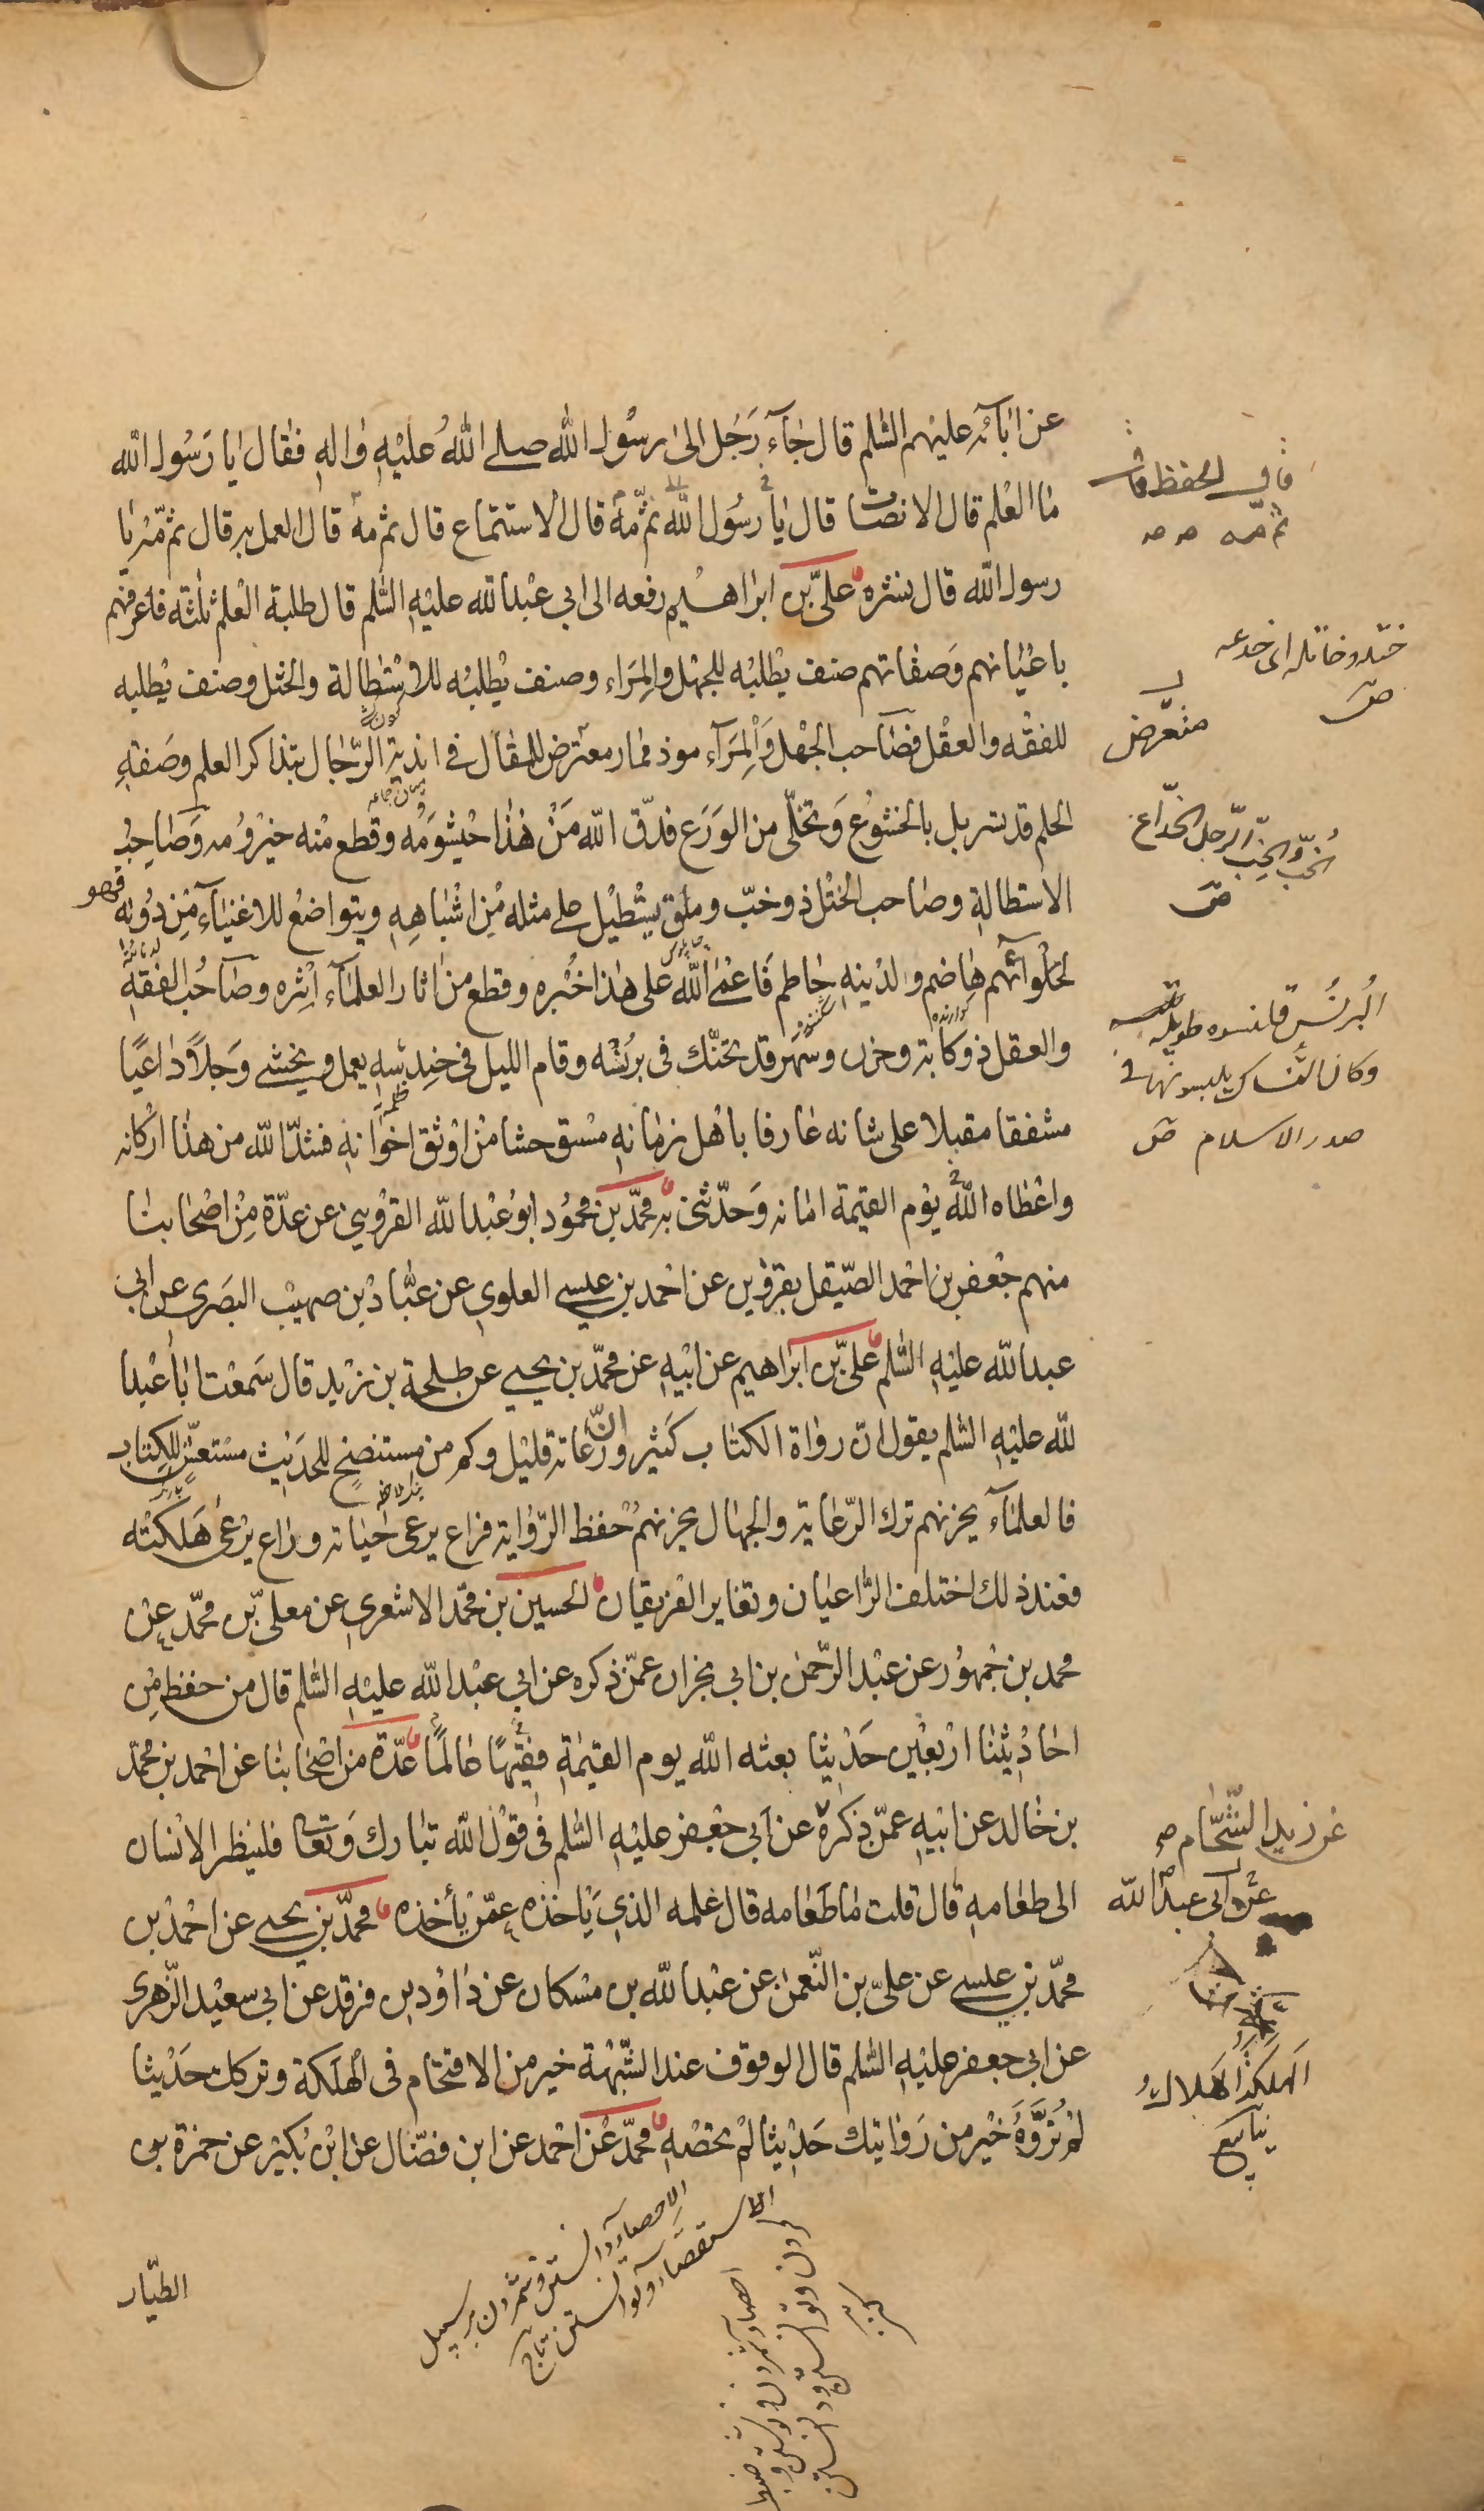 عن ابآئه عليهم السّلم قال جآء رَجُل الى رسُول الله صلى اللهُ عليْهِ واٰلهِ فقال يا رَسُول الله
ما العْلم قال الانصات قال يا رسُول الله ثمّ مهْ قال الاستماع قال ثم مهْ قال العمل به قال ثمّ مْه يا
رسول الله قال نشره علىّ بن ابراهيم رفعه الى ابي عبْد الله عليْهِ السّلم قال طلبة العْلم ثلثة فاعْرفهم
باعْيانهم وَصفاتهم صنف يطْلبْه للجهْل والمِرَاء وصنف يطْلبْه للاسْتطالة والختل وصنف يطْلبه
للفقْه والعقْل فصاحب الجهْل وَالْمِرَآء موذ ممار معترض للمقال في انْدية الرّجال بتذاكر العلم وصَفةِ
الحلم قد تسربل بالخشوُع وَتخلّى من الوَرَع فدّق الله منْ هٰذا خيْشوُمَه وقطع منْه حيْزوُمه وَصَاحِبُ
الاستطالةِ وصاحب الختْل ذو خبّ وملق يسْتطيْل على مثله مِن اشْباهِهِ ويتواضعُ للاغنيآء مِن دوُنه فهو
لحَلْوآئهم هاضم ولدْينهِ حاطم فَاعْمى الله على هٰذا خُبْره وقطع من اٰثار العلمآء اثْره وصَاحُب الفقْهِ
والعقل ذو كاَبة وحزن وسَهر قد تحنّك في برُنسْه وقام الليل في حنِدِسه يعمل ويخشى وَجلاً داعيًا
مشفقا مقبلا على شانه عارفا باهْل زمانهِ مسْتوحشا منْ اوْثق اخواَنهِ فشدّ الله من هذا ارْكانه
واعْطاه اللهُ يوْم القيٰمة امانه وَحدّثنى به محمّد بن محموُد ابوُ عبْد الله القزوْيني عن عدّة مِنْ اصْحابنا
منهم جعْفر بن احْمد الصّيقل بقزوْين عن احْمد بن عيسى العلوي عن عبّاد بْن صهيْب البصَري عن ابي
عبد الله عليْهِ السّلم علىّ بن ابرَاهيم عن ابيْهِ عن محمّد بن يحيى عن طلحة بن زيْد قال سَمعْت ابا عبْد
الله عليْهِ السّلم يقول انّ روٰاة الكتٰاب كثير وانّ رُعاته قليْل وكم من مستنصحٍ للحدَيث مسْتغشٍ للكتٰاب
فالعلمآء يحزنهم ترك الرّعاية والجهال يحزنهمْ حْفظ الرّواية فراع يرعى حَياته وراع يرْعى هَلكتْه
فعند ذلك اختلف الرّاعيان وتغاير الفريقان الحسين بن محمّد الاشعري عن معلىّ بن محمّد عن
محمد بن جمْهوُر عن عبْد الرّحمن بن ابي نجران عمّن ذكره عن ابي عبْد الله عليْهِ السّلم قال من حفظ مِن
احادْيثنا ارْبعْين حَدْيثا بعثه الله يوم القيٰمةِ فقيْهًا عالمًا عدّة من اصْحابنا عن احْمد بن محمّد
بن خالد عن ابيْهِ عمّن ذكره عن اَبي جعْفر عليْهِ السّلم في قوْل الله تبارك وَتعٰالى فلينظر الانْسٰان
الى طعٰامهِ قال قلت ما طعٰامه قال علمه الذي يَأخذه عمّن يأخذه محمّد بن يحيى عن احْمد بن
محمّد بن عيسى عن علىّ بن النّعمٰن عن عبْد الله بن مسْكان عن داوُد بن فرقد عن ابي سعيْد الزّهري
عن ابي جعفر عليْهِ السّلم قال الوقوف عند الشّبْهة خير من الاقتحام في الْهلَكة وتركك حَدْيثا
لمْ ترْوَّهُ خيْر من رَوايتك حَدْيثا لمْ تحصْهِ محمّد عنْ احْمد عن ابن فضّال عن ابْن بُكيْر عن حمزة بن
الطيّار
ثم مه
ختله وخاتله اى خدعه
صَ
متعرض
الخَبّ والخِبّ الرّجل الخدّاع
صَ
البُرنُس قلنسوه طويلة
وكان النسّاك يلبسونها في
صدر الاسلام صَ
عن زيد الشّحّام
عن ابى عبد الله
الهلكة الهَلاك